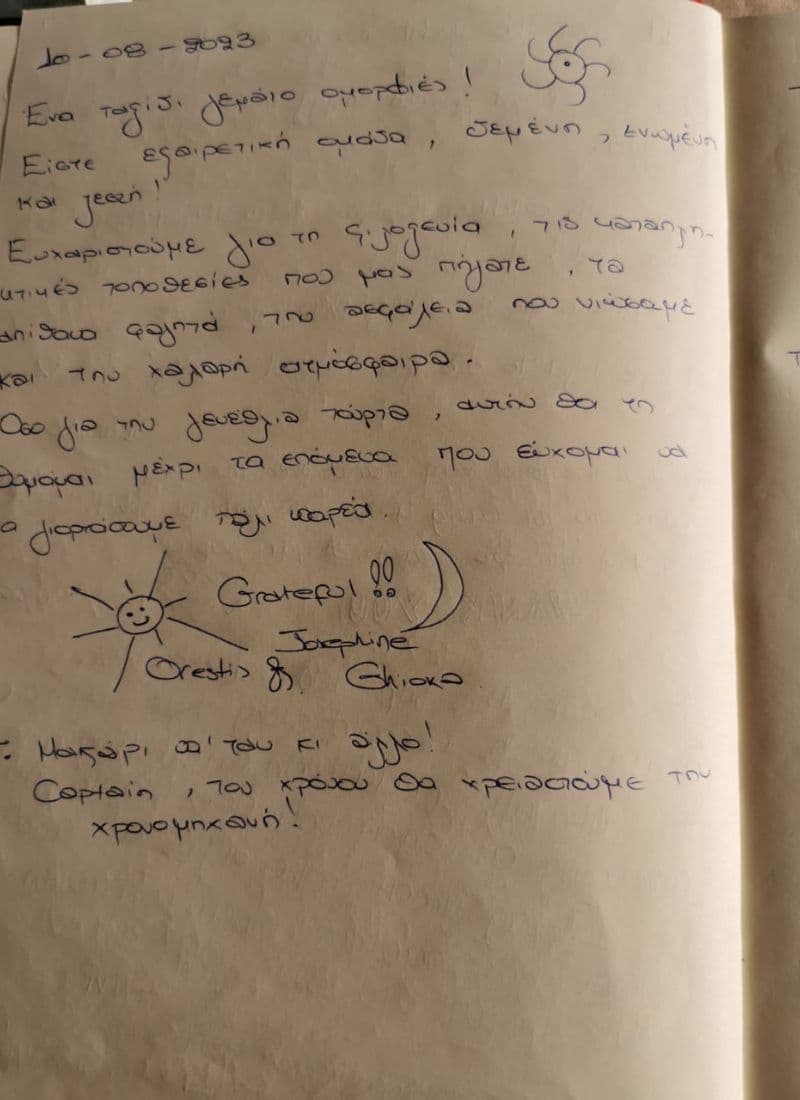 10-08-2023
Ένα ταξίδι γεμάτο ομορφιές!
Είστε εξαιρετική ομάδα, δεμένη, ενωμένη
και ζεστή!
Ευχαριστούμε για τη φιλοξενία, τις καταπλη-
κτικές τοποθεσίες που μας πήγατε, τα
απίθανα φαγητά, την ασφάλεια που νιώσαμε
και την χαλαρή ατμόσφαιρα.
Όσο για την γενέθλια τούρτα, αυτήν θα τη
θυμάμαι μέχρι τα επόμενα που εύχομαι να
τα γιορτάσουμε πάλι παρέα.
Grateful!!
Josephine
Orestis & Ghioka
: Μακάρι απ' του κι άλλο!
Captain, του χρόνου θα χρειαστούμε την
χρονομηχανή!